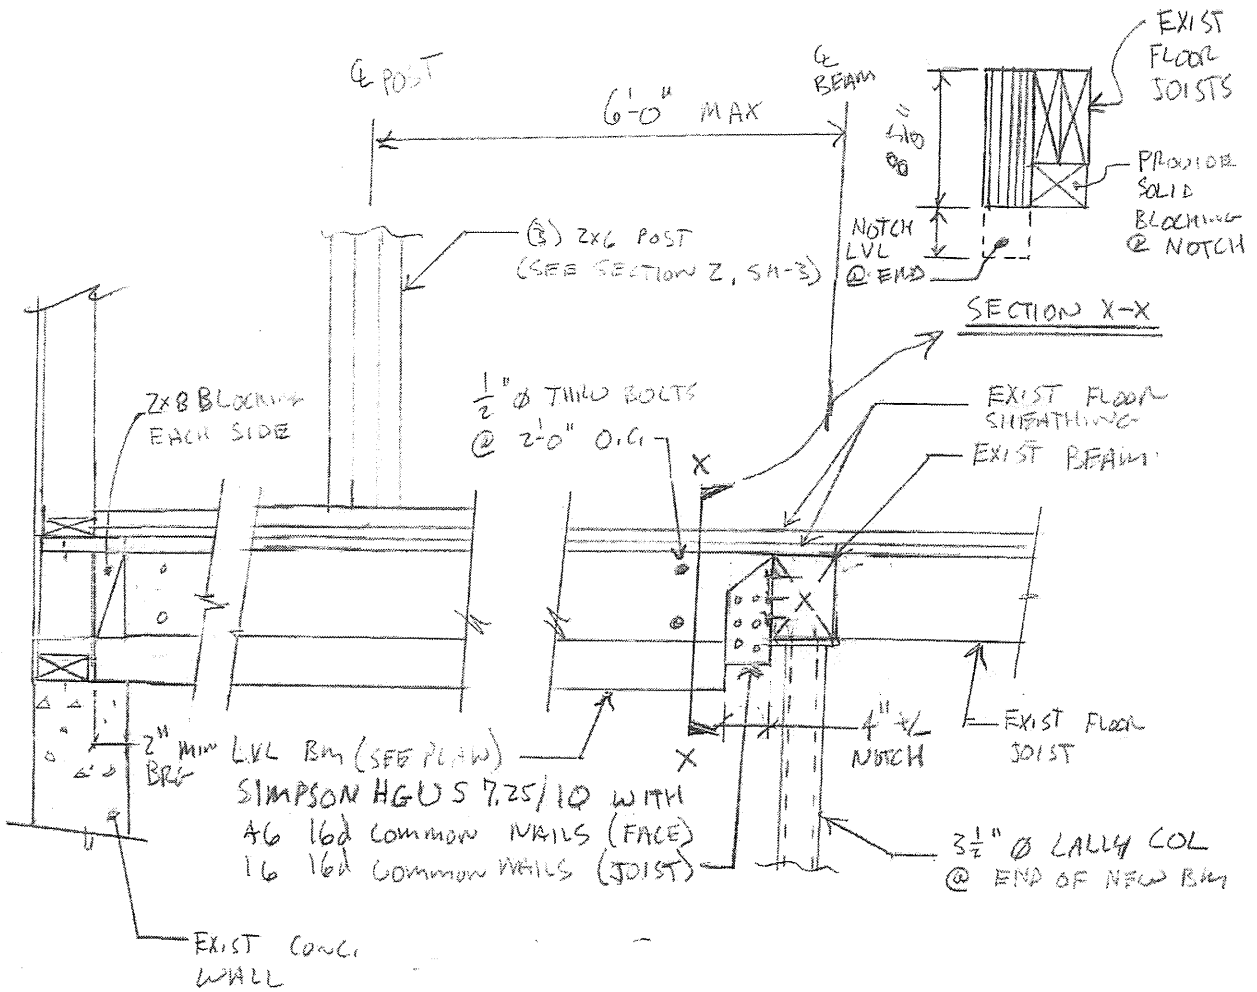 ℄ POST
6'-0" MAX
℄
BEAM
EXIST
FLOOR
JOISTS
PROVIDE
SOLID
BLOCKING
@ NOTCH
NOTCH
LVL
@ END
SECTION X-X
(3) 2x6 POST
(SEE SECTION 2, SH-3)
2x8 BLOCKING
EACH SIDE
1/2" Ø THRU BOLTS
@ 2'-0" O.C.
X
EXIST FLOOR
SHEATHING
EXIST BEAM
X
4" +/-
NOTCH
EXIST FLOOR
JOIST
2" MIN
BRG
LVL BM (SEE PLAN)
SIMPSON HGUS 7.25/10 WITH
46 16d COMMON NAILS (FACE)
16 16d COMMON NAILS (JOIST)
3 1/2" Ø LALLY COL
@ END OF NEW BM
EXIST CONC.
WALL